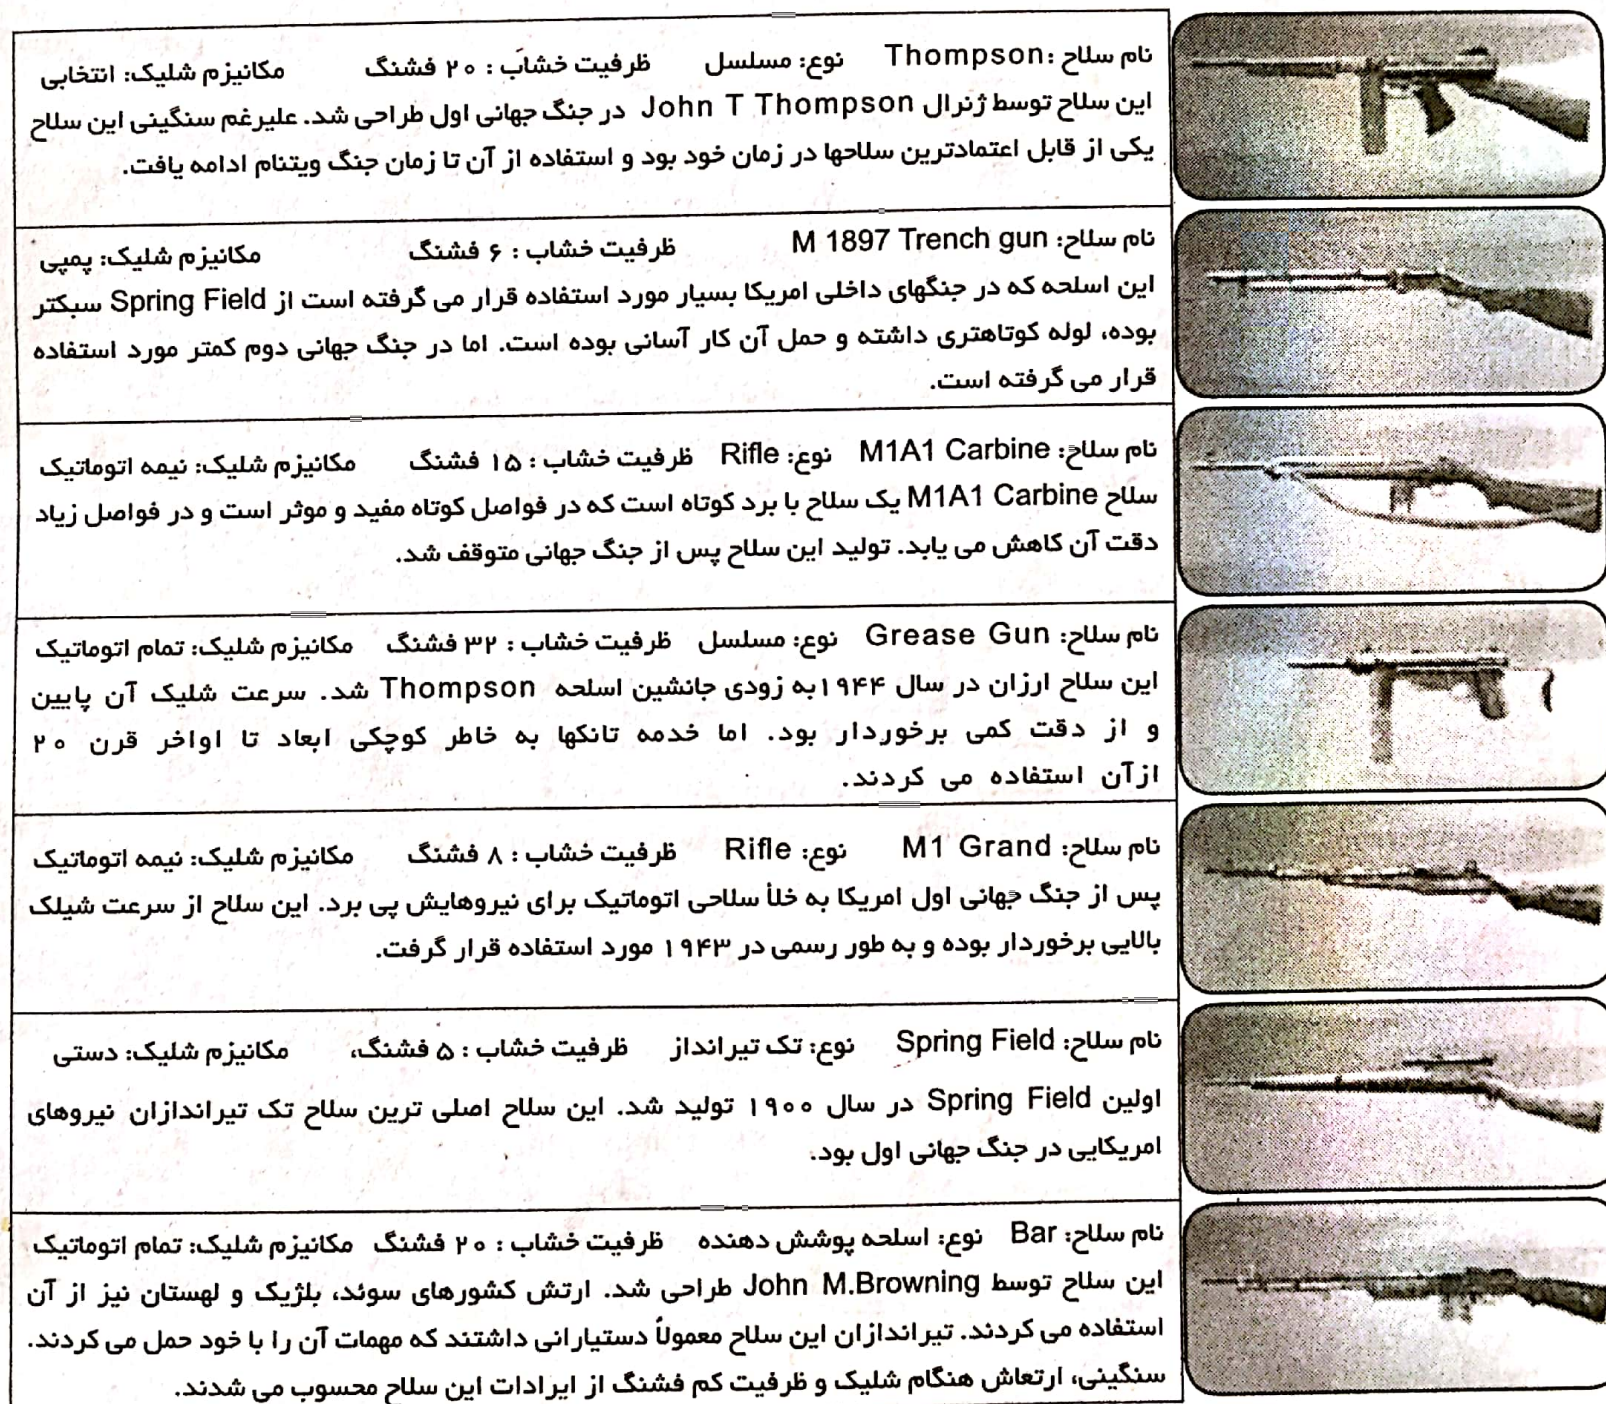 نام سلاح: Thompson نوع: مسلسل ظرفیت خشاب: ۲۰ فشنگ مکانیزم شلیک: انتخابی
این سلاح توسط ژنرال John T Thompson در جنگ جهانی اول طراحی شد. علیرغم سنگینی این سلاح
یکی از قابل اعتمادترین سلاحها در زمان خود بود و استفاده از آن تا زمان جنگ ویتنام ادامه یافت.
نام سلاح: M 1897 Trench gun ظرفیت خشاب: ۶ فشنگ مکانیزم شلیک: پمپی
این اسلحه که در جنگهای داخلی امریکا بسیار مورد استفاده قرار می گرفته است از Spring Field سبکتر
بوده، لوله کوتاهتری داشته و حمل آن کار آسانی بوده است. اما در جنگ جهانی دوم کمتر مورد استفاده
قرار می گرفته است.
نام سلاح: M1A1 Carbine نوع: Rifle ظرفیت خشاب: ۱۵ فشنگ مکانیزم شلیک: نیمه اتوماتیک
سلاح M1A1 Carbine یک سلاح با برد کوتاه است که در فواصل کوتاه مفید و موثر است و در فواصل زیاد
دقت آن کاهش می یابد. تولید این سلاح پس از جنگ جهانی متوقف شد.
نام سلاح: Grease Gun نوع: مسلسل ظرفیت خشاب: ۳۲ فشنگ مکانیزم شلیک: تمام اتوماتیک
این سلاح ارزان در سال ۱۹۴۴ به زودی جانشین اسلحه Thompson شد. سرعت شلیک آن پایین
و از دقت کمی برخوردار بود. اما خدمه تانکها به خاطر کوچکی ابعاد تا اواخر قرن ۲۰
ازآن استفاده می کردند.
نام سلاح: M1 Grand نوع: Rifle ظرفیت خشاب: ۸ فشنگ مکانیزم شلیک: نیمه اتوماتیک
پس از جنگ جهانی اول امریکا به خلأ سلاحی اتوماتیک برای نیروهایش پی برد. این سلاح از سرعت شیلک
بالایی برخوردار بوده و به طور رسمی در ۱۹۴۳ مورد استفاده قرار گرفت.
نام سلاح: Spring Field نوع: تک تیرانداز ظرفیت خشاب: ۵ فشنگ، مکانیزم شلیک: دستی
اولین Spring Field در سال ۱۹۰۰ تولید شد. این سلاح اصلی ترین سلاح تک تیراندازان نیروهای
امریکایی در جنگ جهانی اول بود.
نام سلاح: Bar نوع: اسلحه پوشش دهنده ظرفیت خشاب: ۲۰ فشنگ مکانیزم شلیک: تمام اتوماتیک
این سلاح توسط John M.Browning طراحی شد. ارتش کشورهای سوئد، بلژیک و لهستان نیز از آن
استفاده می کردند. تیراندازان این سلاح معمولاً دستیارانی داشتند که مهمات آن را با خود حمل می کردند.
سنگینی، ارتعاش هنگام شلیک و ظرفیت کم فشنگ از ایرادات این سلاح محسوب می شدند.